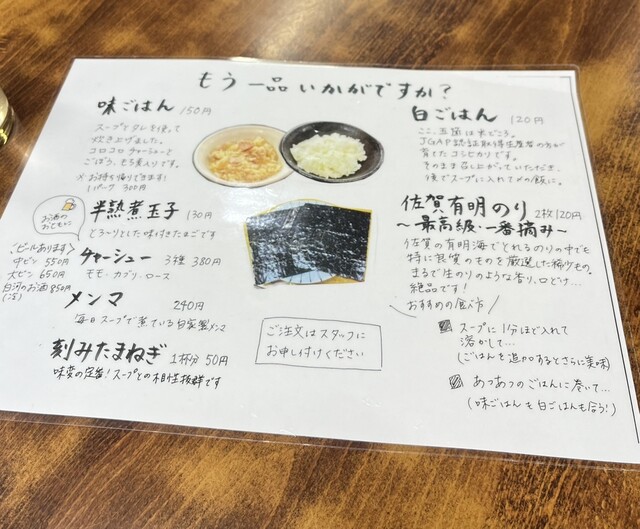 もう一品いかがですか？
味ごはん 150円
スープとタレを使って
炊き上げました。
コロコロチャーシューと
ごぼう、もち麦入りです。
※お持ち帰りできます!
1パック 300円
白ごはん 120円
ここ、五箇は米どころ。
JGAP認証取得生産者の方が
育てたコシヒカリです。
そのまま召し上がっていただき、
後でスープに入れて〆の飯に。
お酒の
おともに
半熟煮玉子 130円
とろ〜りとした味付きたまごです
<ビールあります>
中ビン 550円
大ビン 650円
白河のお酒 850円
チャーシュー 3種 380円
モモ・カブリ・ロース
メンマ 240円
毎日スープで煮ている自家製メンマ
刻みたまねぎ 1杯分 50円
味変の定番！スープとの相性抜群です
佐賀有明のり 2枚120円
〜最高級・一番摘み〜
佐賀の有明海でとれるのりの中でも
特に良質のものを厳選した稀少もの。
まるで生のりのような香り、口どけ…
絶品です！
おすすめの食べ方
スープに1分ほど入れて
溶かして…
(ごはんを追加するとさらに美味)
あつあつのごはんに巻いて…
(味ごはんも白ごはんも合う!)
ご注文はスタッフに
お申し付けください